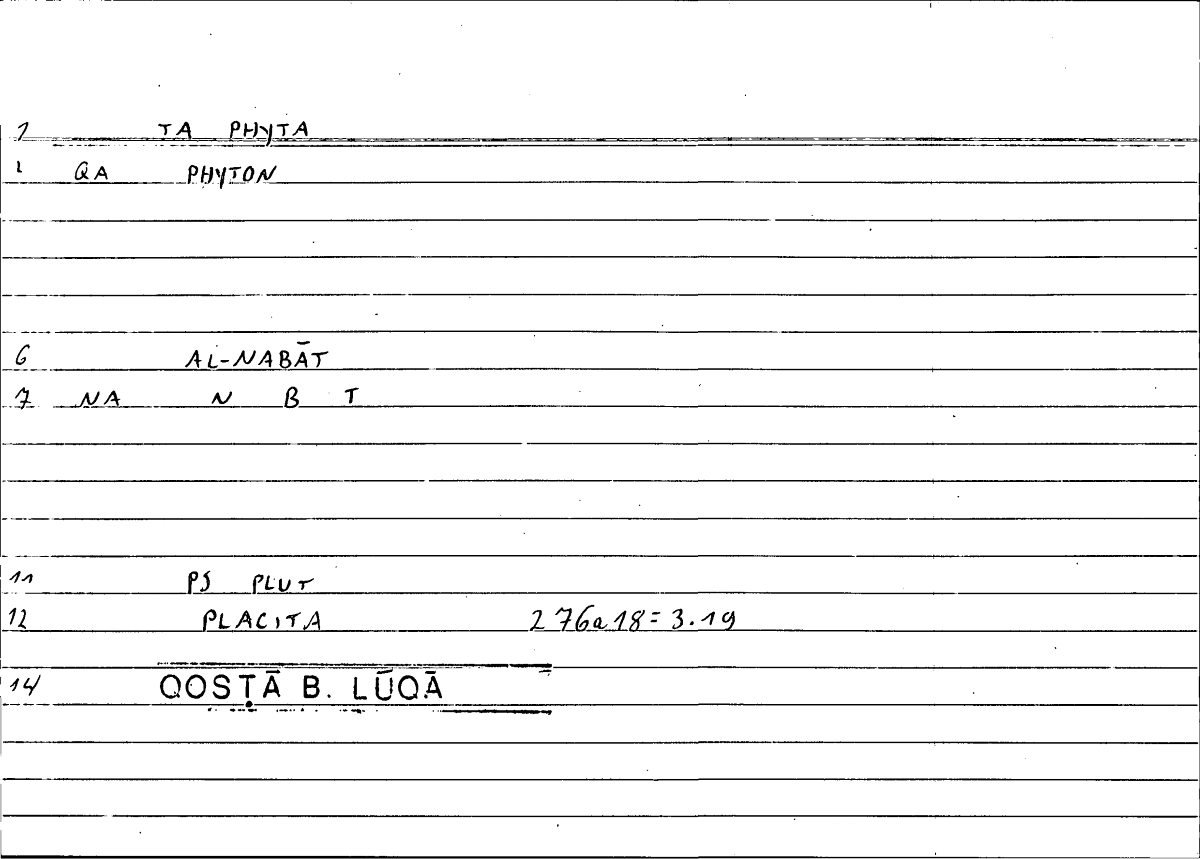 1 TA PHYTA
1 QA PHYTON
6 AL-NABĀT
7 NA N B T
11 PS PLUT
12 PLACITA 276a18=3.19
14 QOSṬĀ B. LŪQĀ